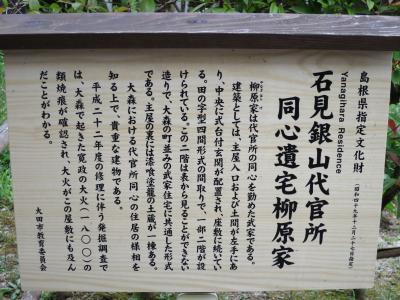 島根県指定文化財
(昭和四十九年十二月二十七日指定)
Yanagihara Residence
石見銀山代官所
同心遺宅柳原家
柳原家は代官所の同心を勤めた武家である。
建築としては、主屋入口および土間が左手にあ
り、中央に式台付玄関が配置され、座敷に続いてい
る。田の字型四間形式の間取りで、一部二階が設
けられている。この二階は表から見ることができない
造りで、大森の町並みの武家住宅に共通した形式
である。主屋の裏には漆喰塗籠の土蔵が一棟ある。
大森における代官所同心の住居の様相を
知る上で、貴重な建物である。
平成二十二年度の修理に伴う発掘調査で
は、大森で起きた寛政の大火(一八〇〇)の
類焼痕が確認され、大火がこの屋敷にも及ん
だことがわかる。
大田市教育委員会